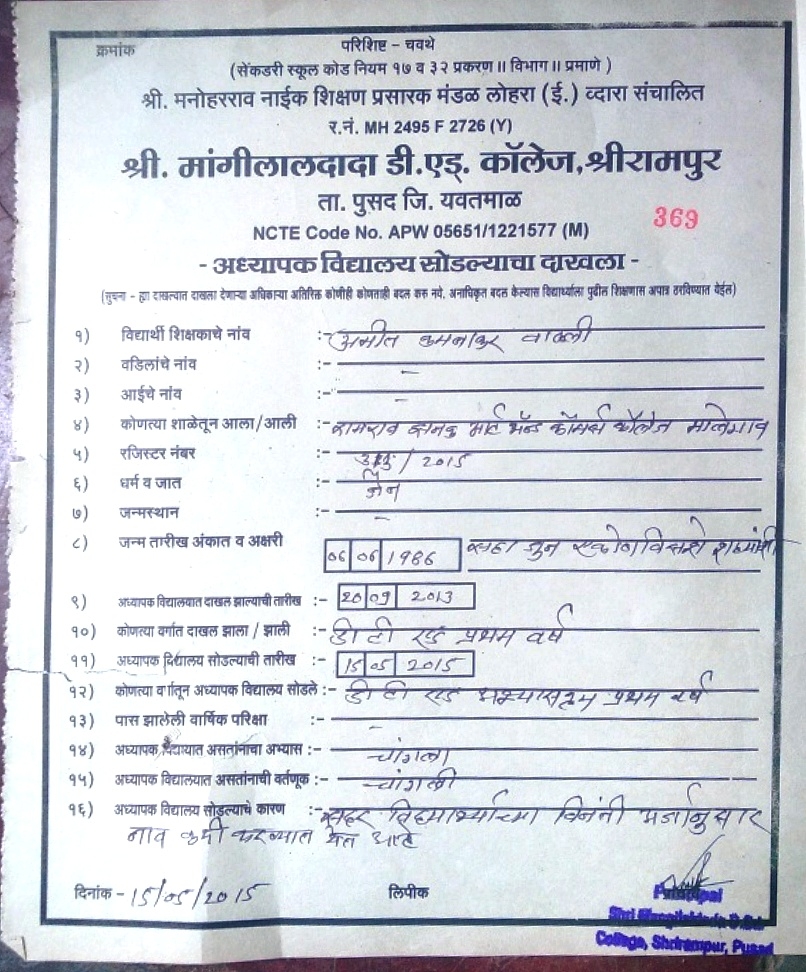 क्रमांक
परिशिष्ट - चवथे
(सेंकडरी स्कूल कोड नियम १७ व ३२ प्रकरण ॥ विभाग ॥ प्रमाणे )
श्री. मनोहरराव नाईक शिक्षण प्रसारक मंडळ लोहरा (ई.) व्दारा संचालित
र.नं. MH 2495 F 2726 (Y)
श्री. मांगीलालदादा डी.एड्. कॉलेज,श्रीरामपुर
ता. पुसद जि. यवतमाळ
NCTE Code No. APW 05651/1221577 (M)
369
- अध्यापक विद्यालय सोडल्याचा दाखला -
(सुचना - ह्या दाखल्यात दाखला देणाऱ्या अधिकाऱ्या अतिरिक्त कोणीही कोणताही बदल करु नये. अनाधिकृत बदल केल्यास विद्यार्थ्याला पुढील शिक्षणास अपात्र ठरविण्यात येईल)
१) विद्यार्थी शिक्षकाचे नांव :-
२) वडिलांचे नांव :- -
३) आईचे नांव :- -
४) कोणत्या शाळेतून आला/आली :- रामराव झनक आर्ट अॅन्ड कॉमर्स कॉलेज मालेगाव
५) रजिस्टर नंबर :- / 2015
६) धर्म व जात :- जैन
७) जन्मस्थान :- -
८) जन्म तारीख अंकात व अक्षरी 06 06 1986 सहा जुन एकोणविसशे शहाऐंशी
९) अध्यापक विद्यालयात दाखल झाल्याची तारीख :- 20 09 2013
१०) कोणत्या वर्गात दाखल झाला / झाली :- डी टी एड प्रथम वर्ष
११) अध्यापक विद्यालय सोडल्याची तारीख :- 15 05 2015
१२) कोणत्या वर्गातून अध्यापक विद्यालय सोडले :- डी टी एड अभ्यासक्रम प्रथम वर्ष
१३) पास झालेली वार्षिक परिक्षा :- -
१४) अध्यापक विद्यायात असतांनाचा अभ्यास :- चांगला
१५) अध्यापक विद्यालयात असतांनाची वर्तणूक :- चांगली
१६) अध्यापक विद्यालय सोडल्याचे कारण :- सदर विद्यार्थ्याच्या विनंती अर्जानुसार
नाव कमी करण्यात येत आहे
दिनांक - 15/05/2015 लिपीक
Principal
College, Shrirampur, Pusad